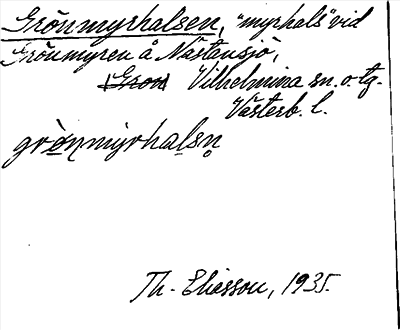 Grönmyrhalsen, "myrhals" vid
Grönmyren å Nästansjö,
Vilhelmina sn. o. tg.
Västerb. l.
grö̀nmyrhalsn̥
Th. Eliasson, 1935.